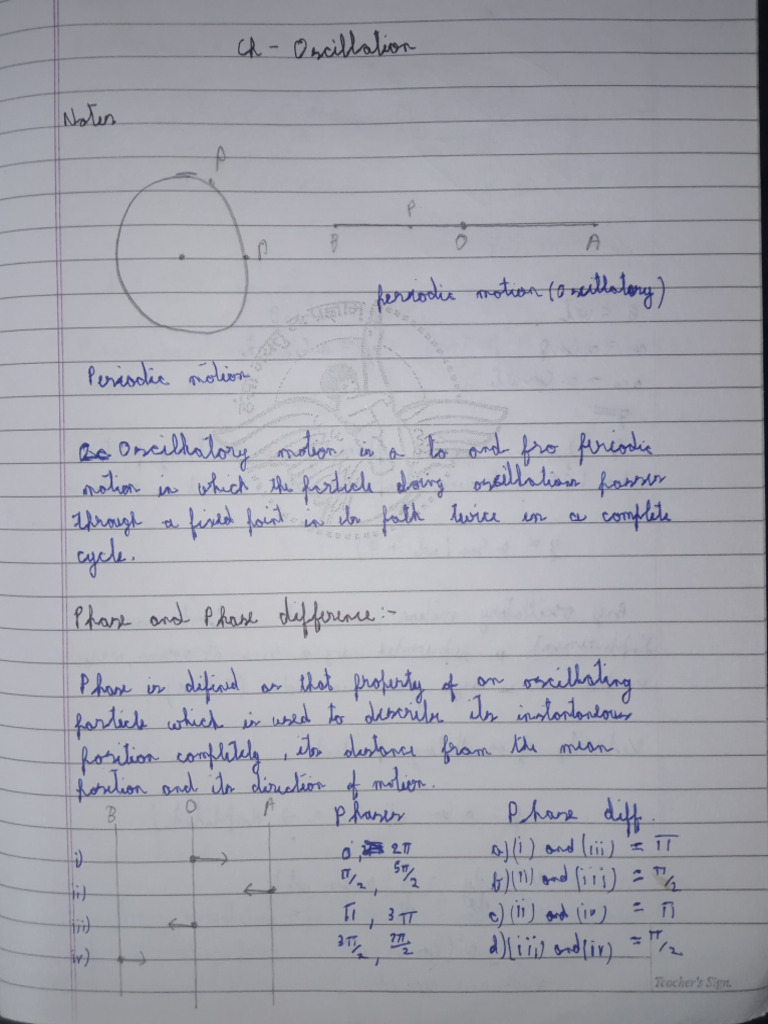 Ch - Oscillation
Notes
P
P
B P O A
Periodic motion (Oscillatory)
Periodic motion
Oscillatory motion is a to and fro periodic
motion in which the particle doing oscillations passes
through a fixed point in its path twice in a complete
cycle.
Phase and Phase difference:-
Phase is difined as that property of an oscillating
particle which is used to describe its instantoneous
position completely, its distance from the mean
position and its direction of motion.
B O A Phases Phase diff.
i) 0, 2π a) (i) and (iii) = π
ii) π/2, 5π/2 b) (ii) and (iii) = π/2
iii) π, 3π c) (ii) and (iv) = π
iv) 3π/2, 7π/2 d) (iii) and (iv) = π/2
Teacher's Sign.